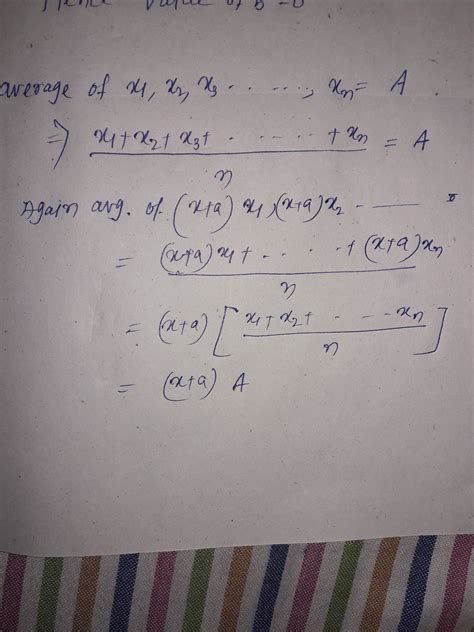 Hence value of B = 0
average of x1, x2, x3 . . . . . . , xn = A
⇒ x1 + x2 + x3 + . . . . . . + xn / n = A
Again avg. of (x+a) x1, (x+a) x2 . ——
= (x+a) x1 + . . . . + (x+a) xn / n
= (x+a) [ x1 + x2 + . . . . xn / n ]
= (x+a) A